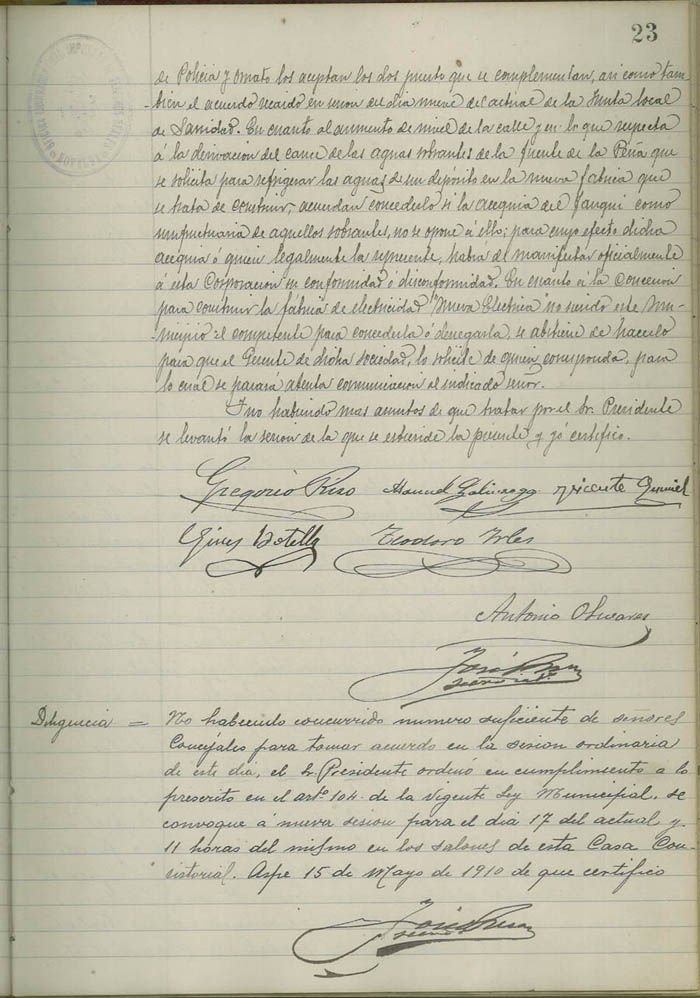 23
de Policia y Ornato los aceptan los dos puesto que se complementan, asi como tam-
bien el acuerdo recaido en sesion del dia nueve del actual de la Junta local
de Sanidad. En cuanto al aumento de nivel de la calle y en lo que respecta
á la derivacion del cauce de las aguas sobrantes de la fuente de la Peña que
se solicita para refrigerar las aguas de un depósito en la nueva fábrica que
se trata de construir, acuerdan concederlo si la acequia del Fauquí como
usufructuaria de aquellos sobrantes, no se opone á ello; para cuyo efecto dicha
acequia ó quien legalmente la represente, habrá de manifestar oficialmente
á esta Corporacion su conformidad ó disconformidad. En cuanto á la concesion
para construir la fábrica de electricidad "Nueva Electrica" no siendo este Mu-
nicipio el competente para concederla ó denegarla, se abstiene de hacerlo
para que el Gerente de dicha sociedad, lo solicite de quien corresponda, para
lo cual se pasará atenta comunicacion al indicado señor.
Y no habiendo mas asuntos de que tratar por el Sr. Presidente
se levantó la sesion de la que se estiende la presente y yó certifico.
Gregorio Manuel Vicente
Gines Botella Teodoro Irles
Antonio Olivares
José
Diligencia = No habiendo concurrido numero suficiente de señores
Concejales para tomar acuerdo en la sesion ordinaria
de este dia, el Sr. Presidente ordenó en cumplimiento a lo
prescrito en el artº 104 de la vigente Ley Municipal, se
convoque á nueva sesion para el dia 17 del actual y
11 horas del mismo en los salones de esta Casa Con-
sistorial. Aspe 15 de Mayo de 1910 de que certifico
José